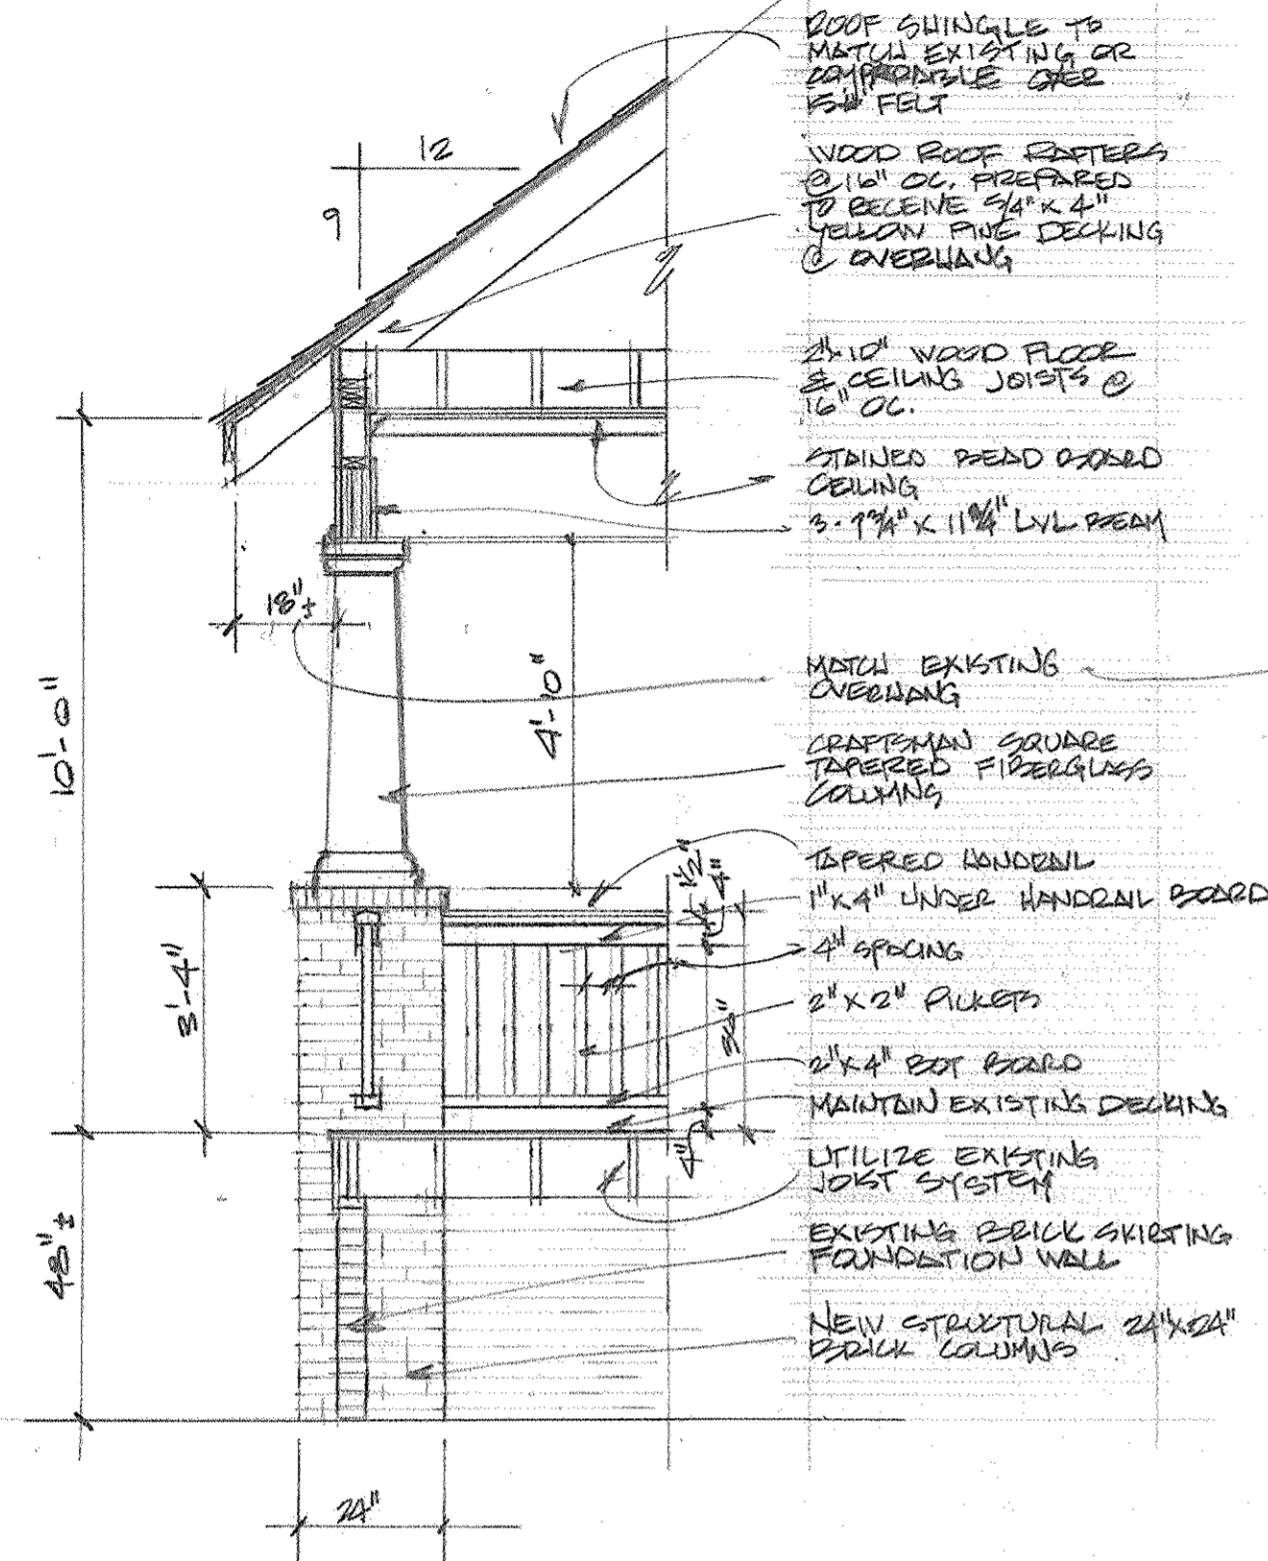 ROOF SHINGLE TO
MATCH EXISTING OR
COMPARABLE OVER
15# FELT
12
9
WOOD ROOF RAFTERS
@ 16" OC. PREPARED
TO RECEIVE 5/4" X 4"
YELLOW PINE DECKING
@ OVERHANG
2"x10" WOOD FLOOR
& CEILING JOISTS @
16" OC.
STAINED BEAD BOARD
CEILING
3- 1 3/4" X 11 3/4" LVL BEAM
18"±
10'-0"
4'-10"
MATCH EXISTING
OVERHANG
CRAFTSMAN SQUARE
TAPERED FIBERGLASS
COLUMNS
TAPERED HANDRAIL
1 1/2"
4"
1"X4" UNDER HANDRAIL BOARD
4" SPACING
3'-4"
2"X2" PICKETS
36"
2"X4" BOT BOARD
MAINTAIN EXISTING DECKING
4"
UTILIZE EXISTING
JOIST SYSTEM
48"±
EXISTING BRICK SKIRTING
FOUNDATION WALL
NEW STRUCTURAL 24"X24"
BRICK COLUMNS
24"